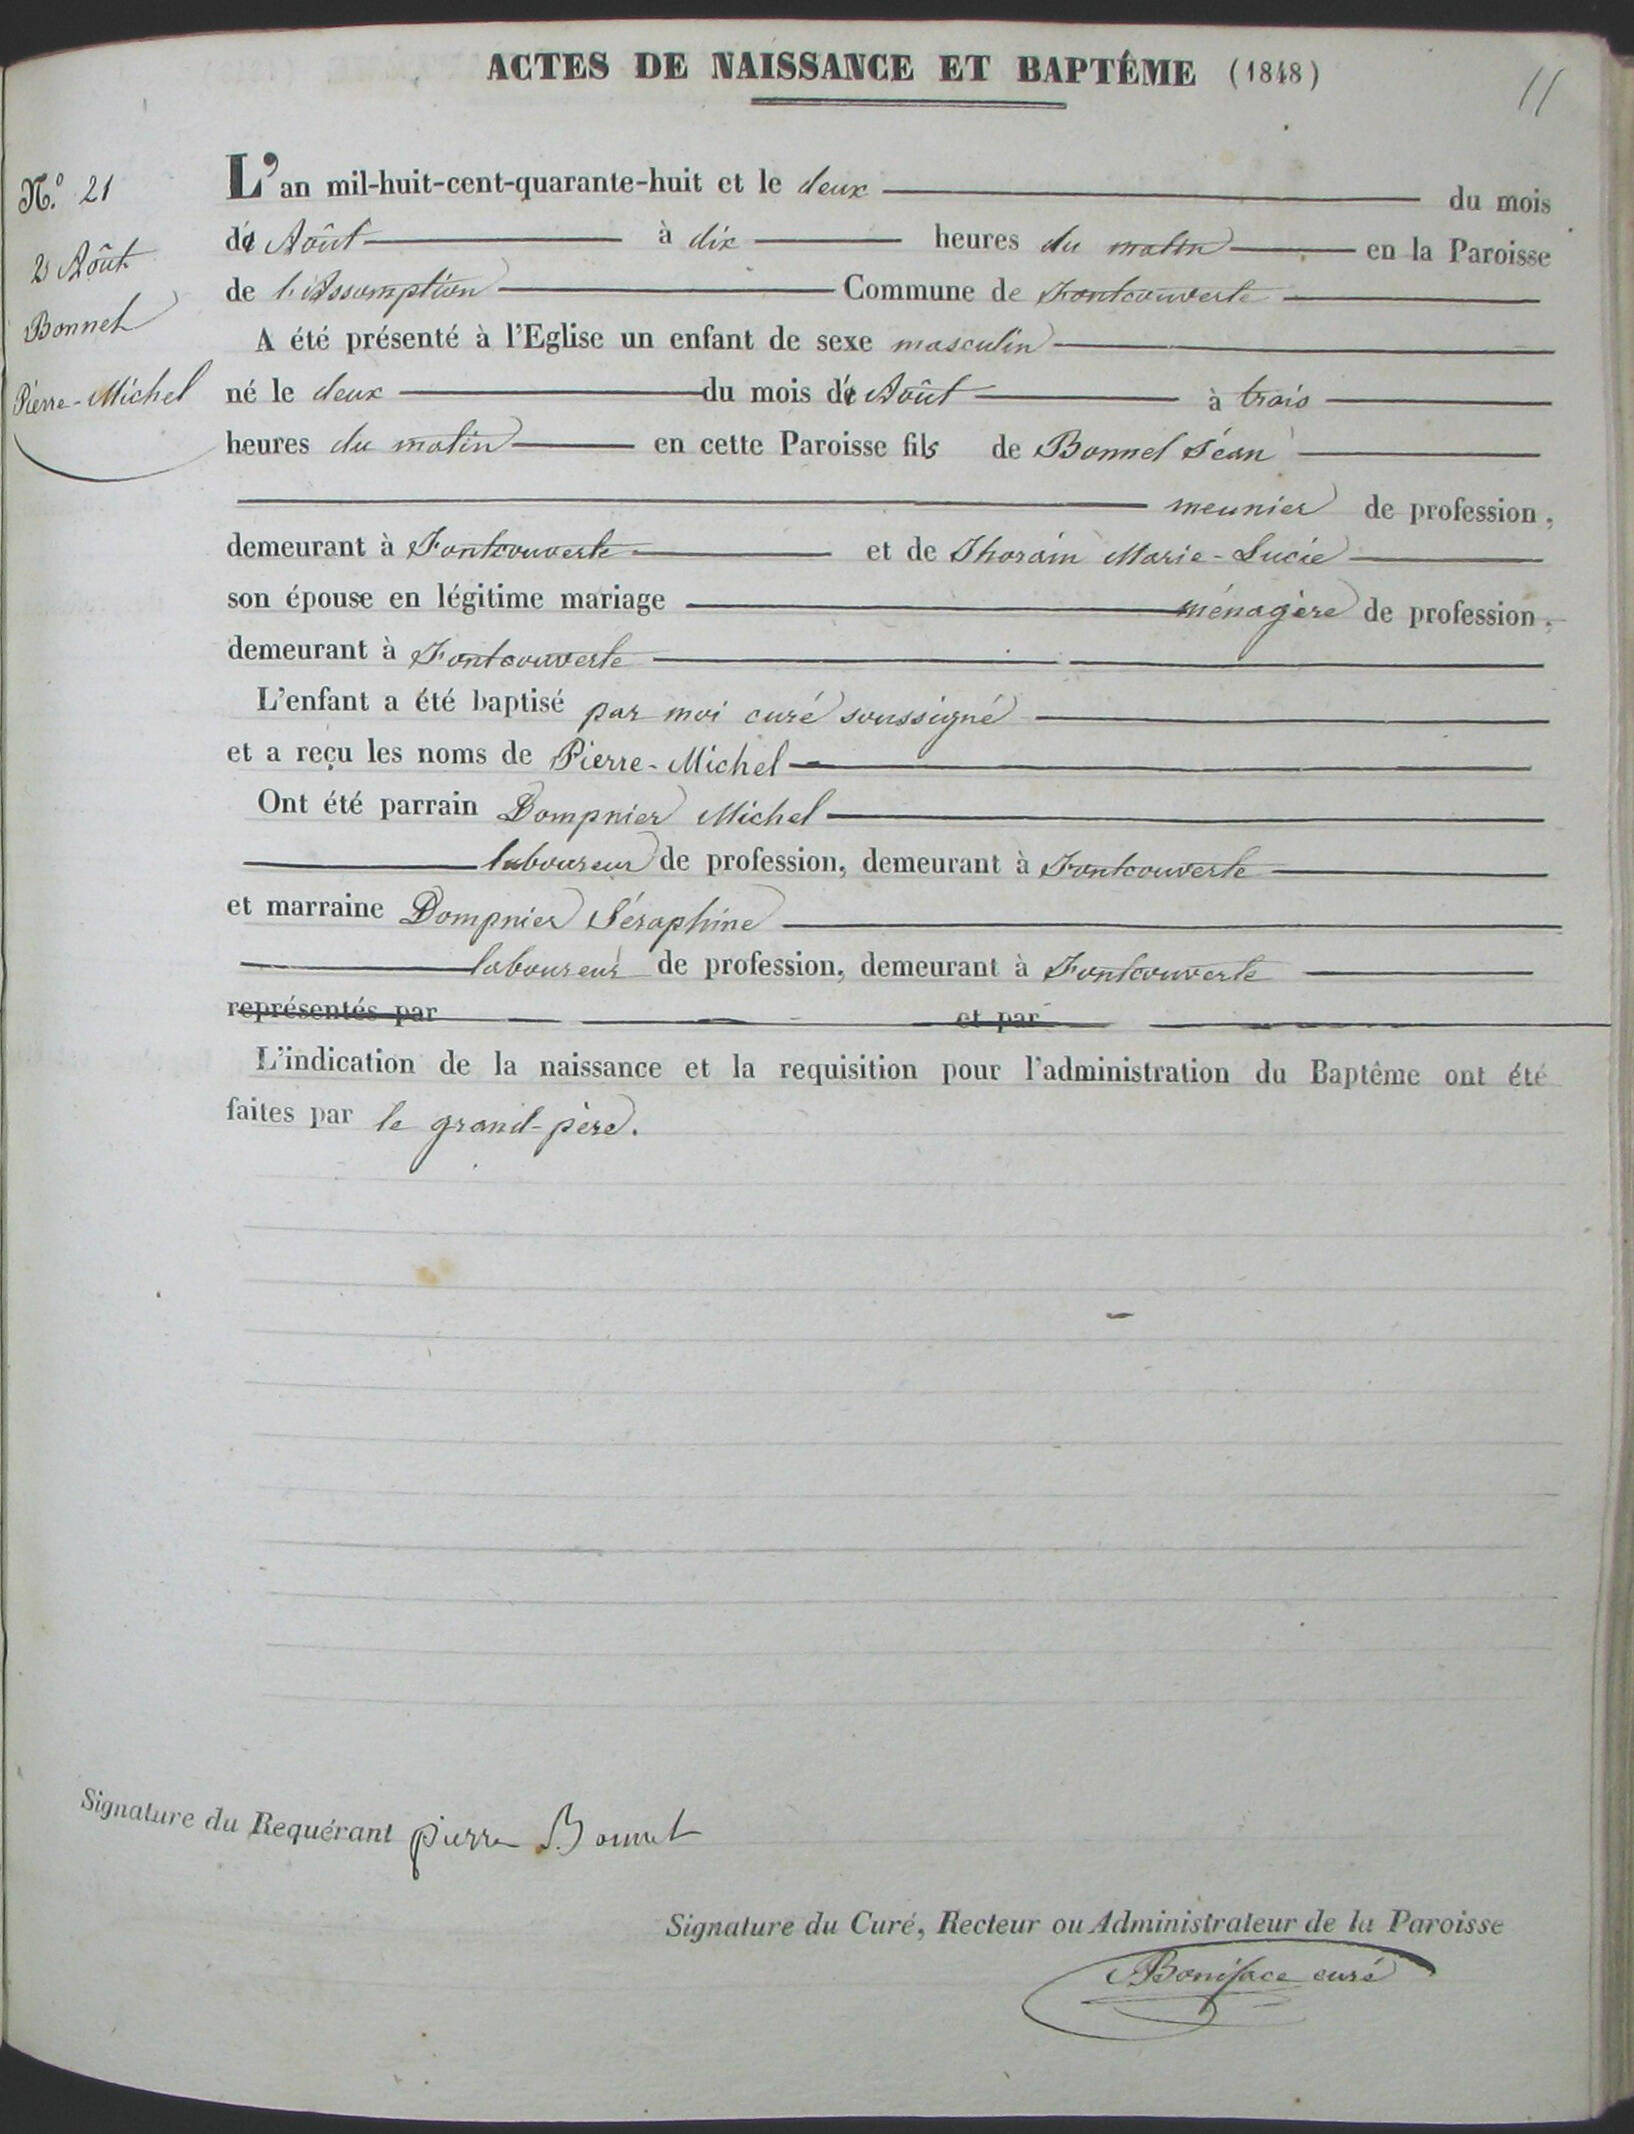 ACTES DE NAISSANCE ET BAPTÊME (1848)
11
N.º 21
2 Août
Bonnet
Pierre-Michel
L'an mil-huit-cent-quarante-huit et le deux du mois
d' Août à dix heures du matin en la Paroisse
de l'Assomption Commune de Fontcouverte
A été présenté à l'Eglise un enfant de sexe masculin
né le deux du mois d' Août à trois
heures du matin en cette Paroisse fils de Bonnet Jéan
meunier de profession,
demeurant à Fontcouverte et de Thorain Marie-Lucie
son épouse en légitime mariage ménagère de profession.
demeurant à Fontcouverte
L'enfant a été baptisé par moi curé soussigné
et a reçu les noms de Pierre-Michel
Ont été parrain Dompnier Michel
laboureur de profession, demeurant à Fontcouverte
et marraine Dompnier Séraphine
laboureur de profession, demeurant à Fontcouverte
représentés par et par
L'indication de la naissance et la requisition pour l'administration du Baptême ont été
faites par le grand-père.
Signature du Requérant pierre Bonnet
Signature du Curé, Recteur ou Administrateur de la Paroisse
Boniface curé